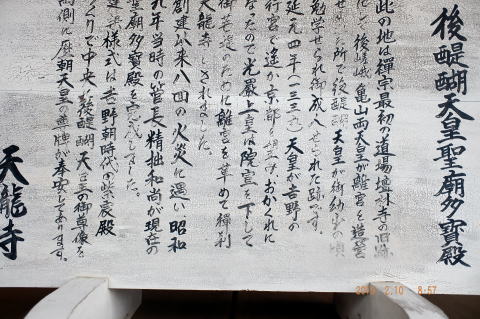 後醍醐天皇聖廟多寶殿
此の地は禅宗最初の道場檀林寺の旧跡
で後嵯峨 亀山両天皇が離宮を造営
せ 所で後醍醐天皇が御幼少の頃
勉学せられ御成人せられた跡 す。
延元四年(一三三九)天皇が吉野の
行宮で遥か京都を おかくれに
なったので光厳上皇は院宣を下して
御菩提のために離宮を革めて禅刹
天龍寺 されました。
創建以来八回の火災に遇い昭和
九年当時の管長精拙和尚が現在の
聖廟多寶殿を完成しました。
建 様式は吉野朝時代の紫宸殿
つくりで中央に後醍醐天皇の御尊像を
両側に歴朝天皇の尊牌が奉安してあります。
天龍寺
2.10 8:57